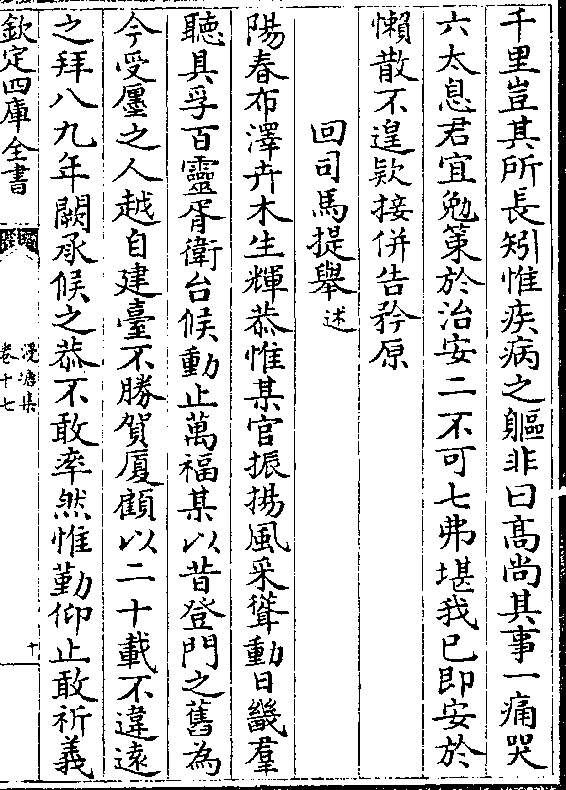 千里豈其所長矧惟疾病之軀非曰髙尚其事一痛哭
六太息君宜勉策於治安二不可七弗堪我已即安於
懶散不遑欵接併告矜原
回司馬提舉述
陽春布澤卉木生輝恭惟某官振揚風采聳動日畿羣
聽具孚百靈胥衛台候動止萬福某以昔登門之舊為
今受廛之人越自建臺不勝賀厦顧以二十載不違遠
之拜八九年闕承候之恭不敢率然惟勤仰止敢祈義
欽定四庫全書
漫塘集
卷十七
十